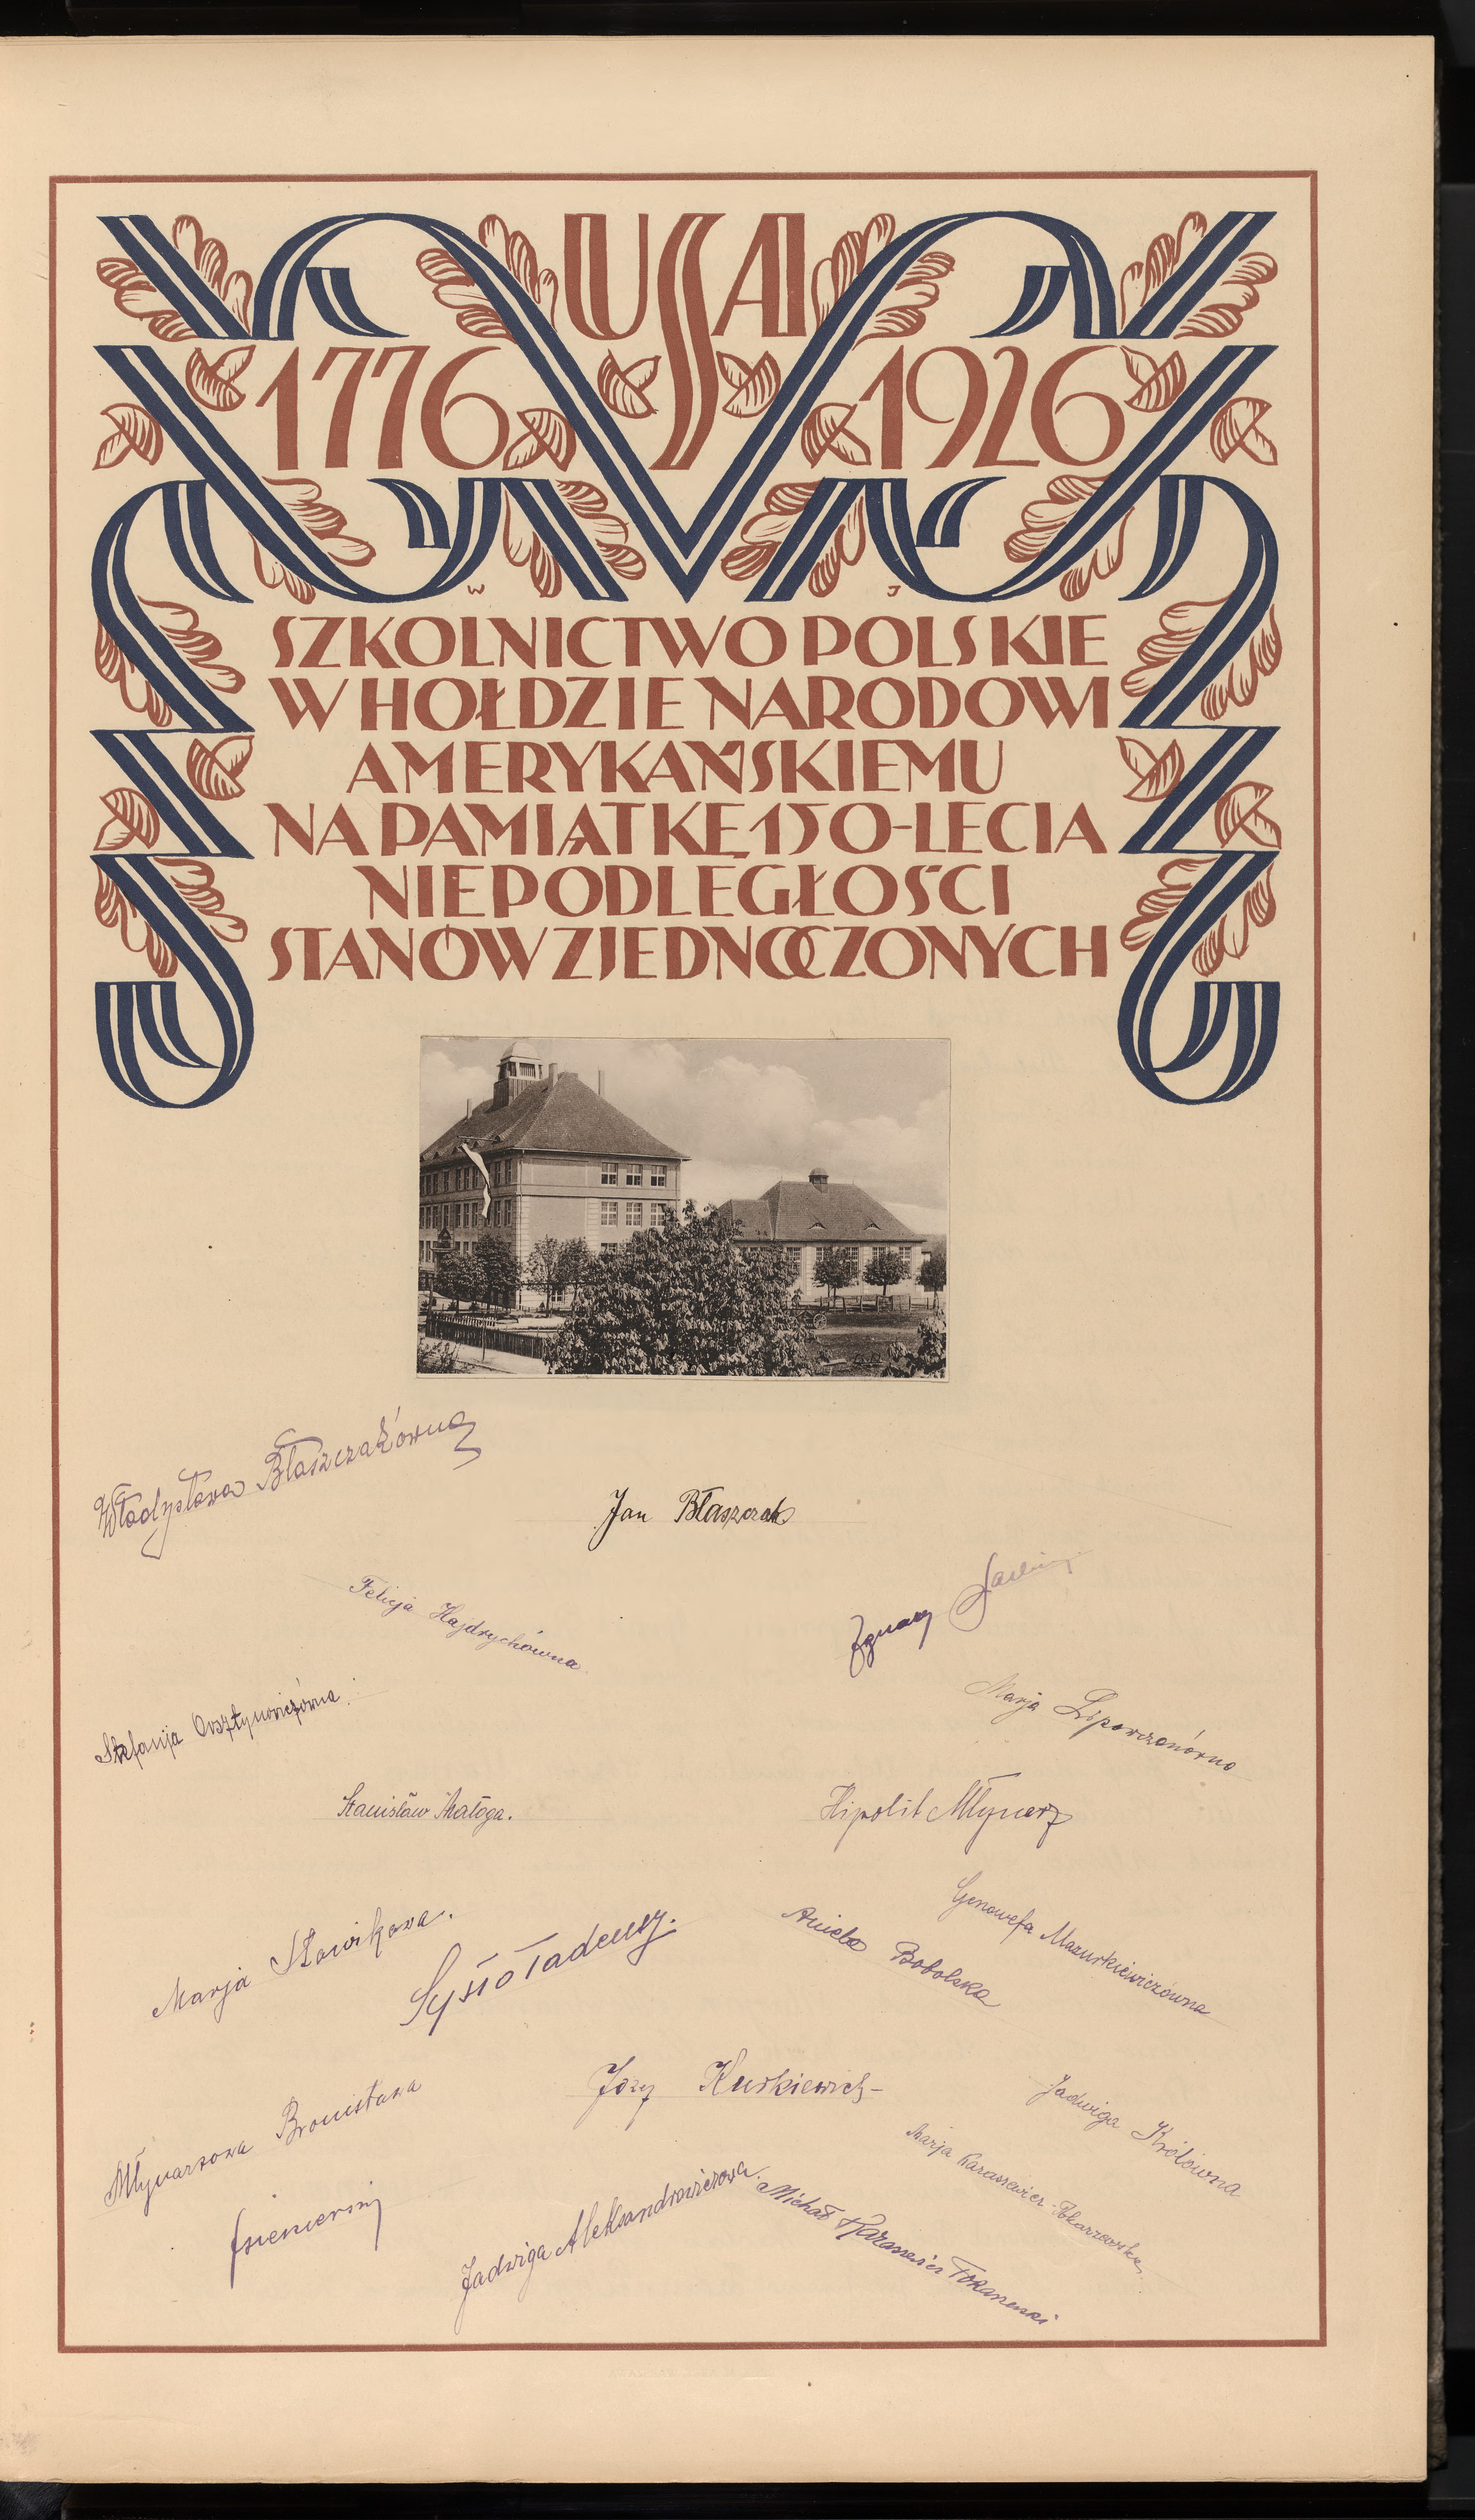 USA
1776 1926
W J
SZKOLNICTWO POLSKIE
W HOŁDZIE NARODOWI
AMERYKAŃSKIEMU
NA PAMIĄTKĘ 150-LECIA
NIEPODLEGŁOŚCI
STANÓW ZJEDNOCZONYCH
Władysława Błaszczakówna
Jan Błaszczak
Felicja Hajdrychówna
Ignacy
Stefanja
Marja
Stanisław Małoga.
Hipolit Młynarz
Genowefa Mazurkiewiczówna
Aniela Bobolska
Marja Słowikowa.
Sysło Tadeusz.
Józef Kurkiewicz
Jadwiga Królówna
Młynarzowa Bronisława
Marja Karasiewicz-Tokarzewska
Jadwiga Aleksandrowiczowa.
Michał Karasiewicz Tokarzewski